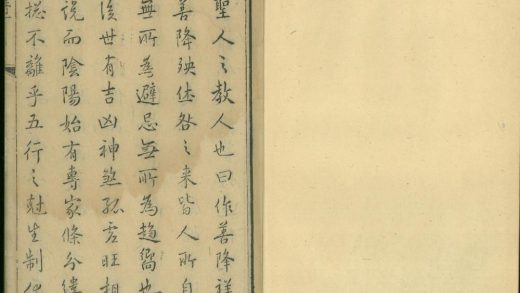 聖人之教人也曰作善降祥
善降殃休咎之來皆人所自
無所為避忌無所為趨嚮也
後世有吉凶神煞孤虛旺相
说而陰陽始有專家條分縷
揔不離乎五行之尅生制化